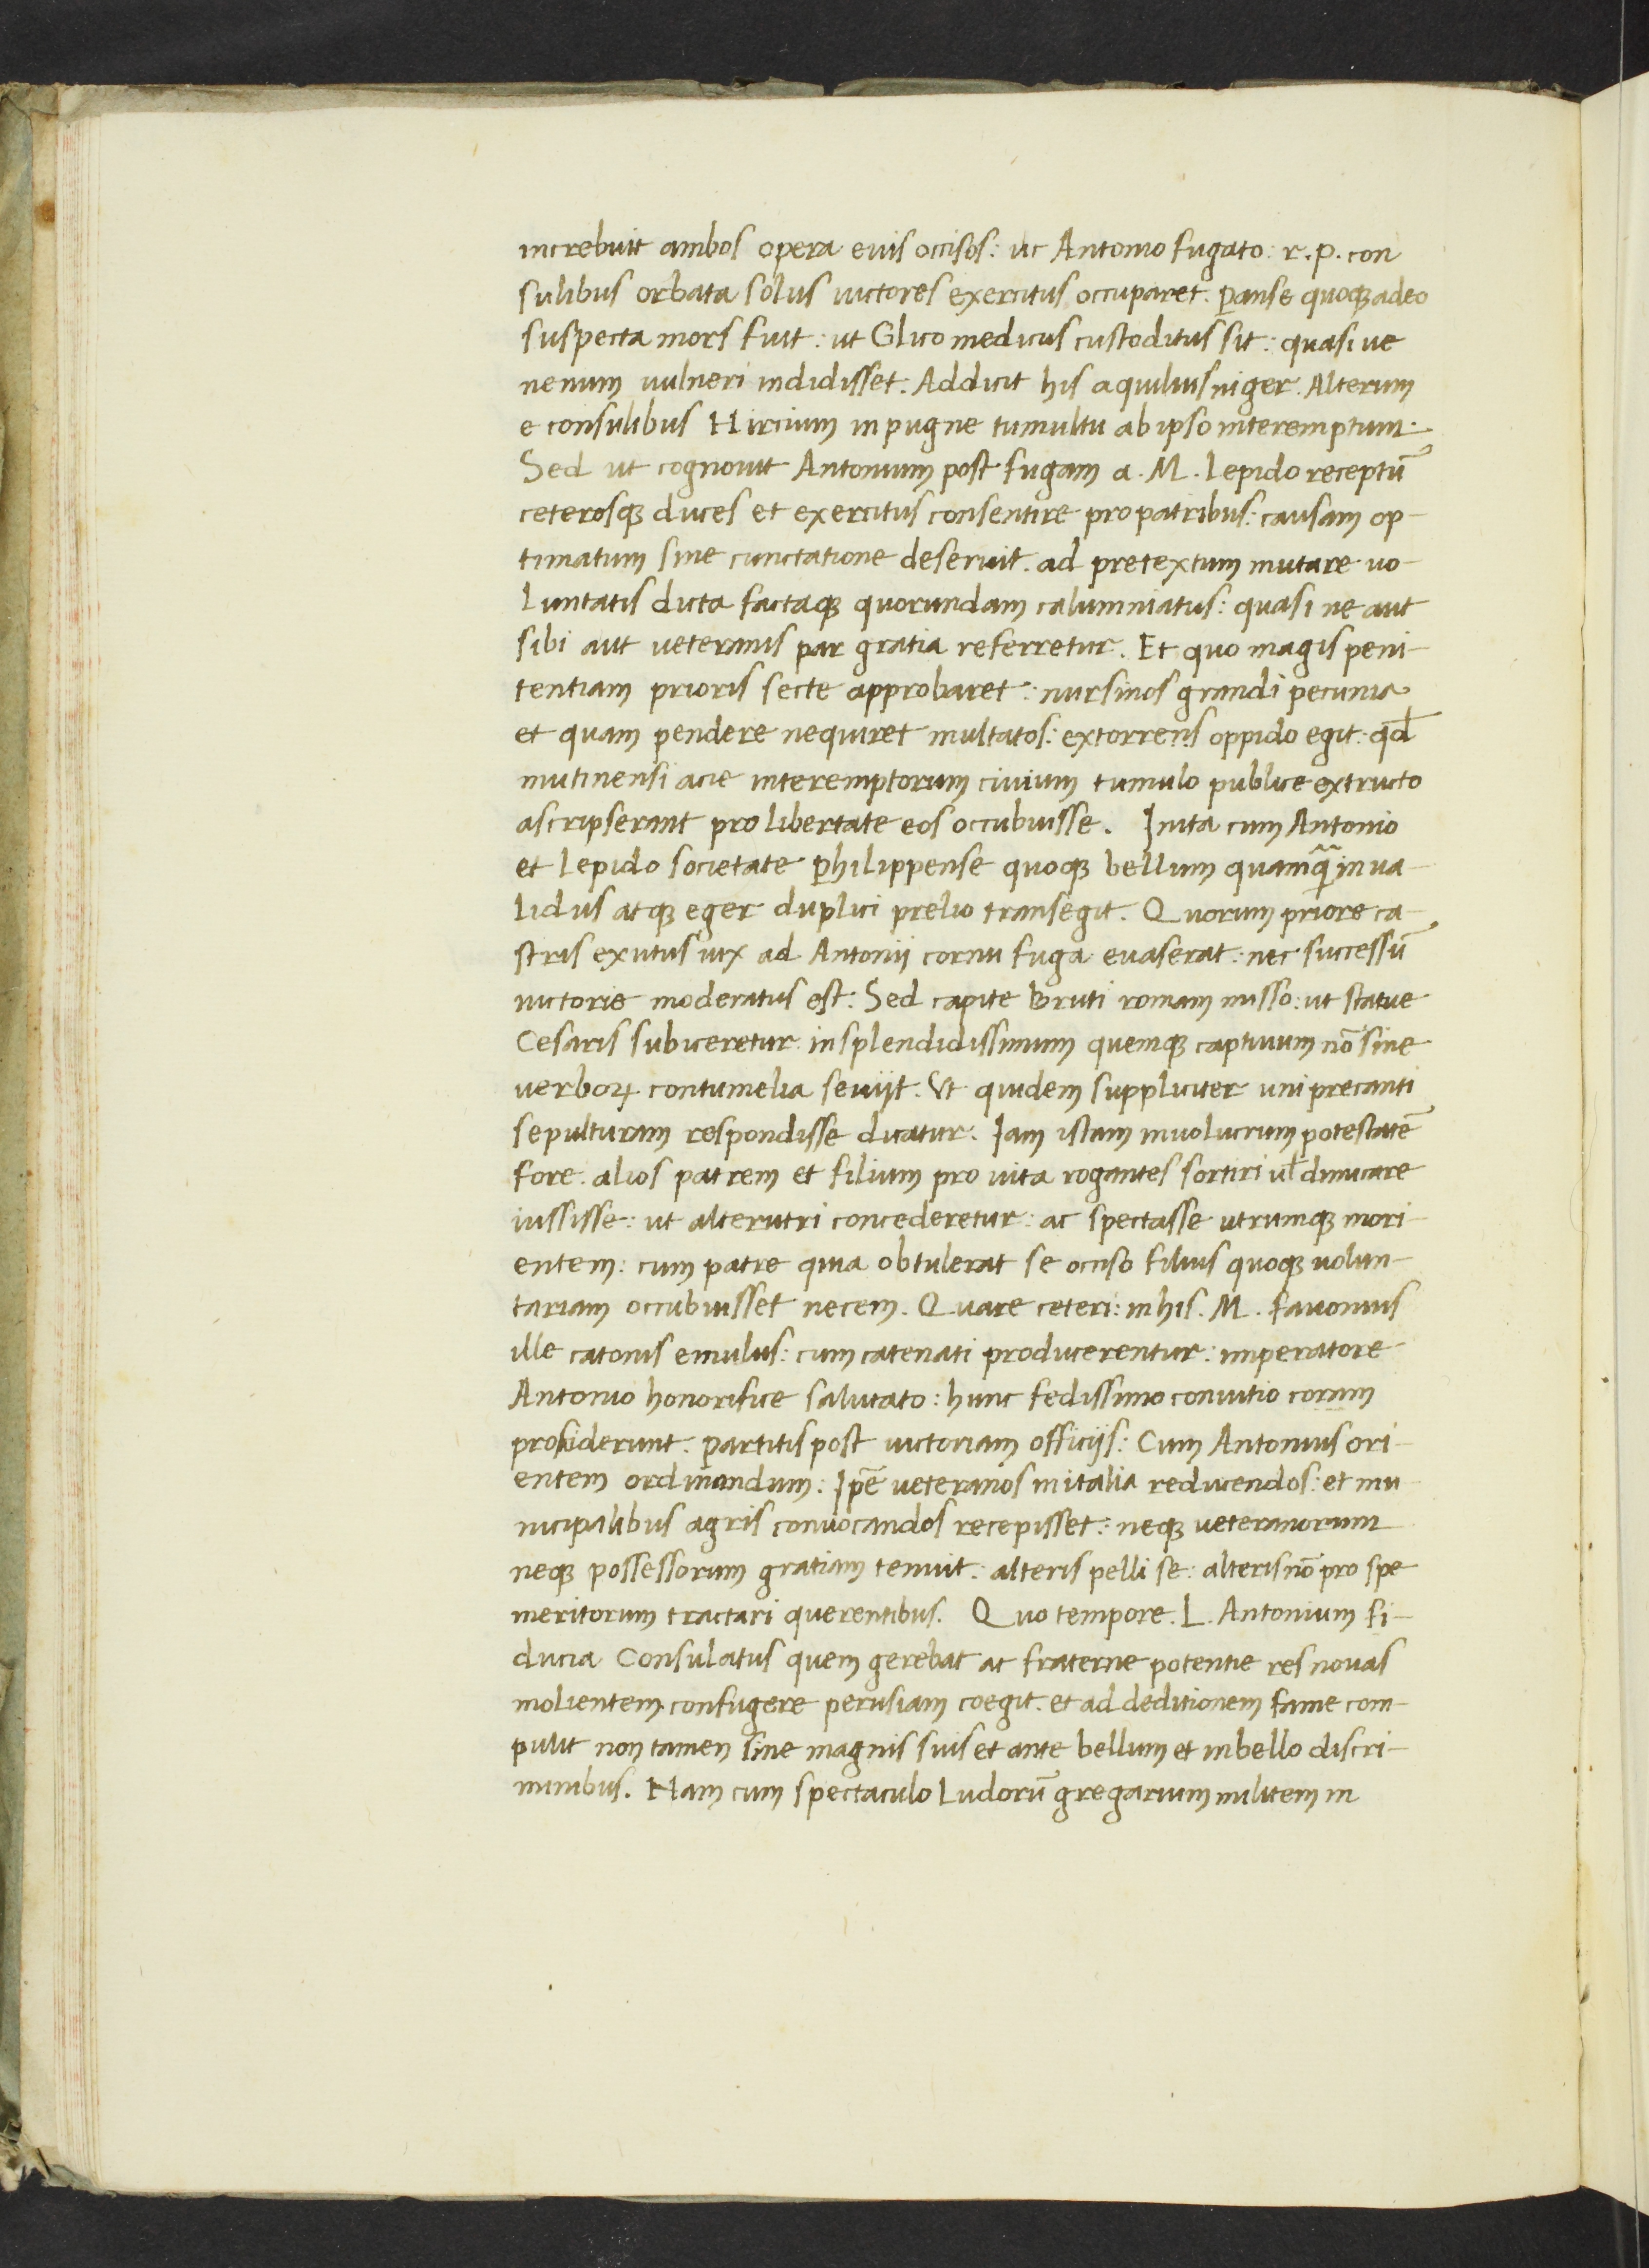 increbuit ambos opera euis occisos: uc Antonio fugato: r.p. con
sulibus orbata solus uictores exercitus occuparet. Panse quoqꝫ adeo
suspecta mors fuit: ut Glico medicus custoditus sit: quasi ue
nenum uulneri indidisset. Addicit his aquilius niger. Alterum
e consulibus Hircium in pugne tumultu ab ipso interemptum.
Sed ut cognouit Antonium post fugam a. M. lepido receptū
ceterosqꝫ duces et exercitus consentire pro patribus: causam op-
timatum sine cunctatione deseruit. ad pretextum mutare uo-
luntatis dicta factaqꝫ quorundam calumniatus: quasi ne aut
sibi aut ueteranis par gratia referretur. Et quo magis peni-
tentiam prioris secte approbaret: nursinos grandi pecunia
et quam pendere nequiret multatos: extorrens oppido egit: qđ
mutinensi acie interemptorum ciuium tumulo publice extructo
ascripserant pro libertate eos occubuisse. Inita cum Antonio
et lepido societate Philippense quoqꝫ bellum quamꝗ̄ inua-
lidus atqꝫ eger duplici prelio transegit. Quorum priore ca-
stris exutus uix ad Antonij cornu fuga euaserat: nec successū
uictorie moderatus est: Sed capite Bruti romam misso: ut statue
Cesaris subiceretur in splendidissimum quemqꝫ captiuum nō sine
uerboꝝ contumelia seuijt. Ut quidem suppliciter uni precanti
sepulturam respondisse dicatur. Iam istam inuolucrum potestatē
fore. alios patrem et filium pro uita rogantes sortiri ul̄ dimicare
iussisse: ut alterutri concederetur: ac spectasse utrumqꝫ mori-
entem: cum patre quia obtulerat se occiso filius quoqꝫ uolun-
tariam occubuisset necem. Quare ceteri: in his. M. fauonius
ille catonis emulus: cum catenati producerentur: imperatore
Antonio honorifice salutato: hunc fedissimo conuitio coram
prosciderunt. partitis post uictoriam officijs: Cum Antonius ori-
entem ordinandum: Ipē ueteranos in italia reducendos: et mu-
nicipalibus agris conuocandos recepisset: neqꝫ ueteranorum
neqꝫ possessorum gratiam tenuit: alteris pelli se: alteris nō pro spe
meritorum tractari querentibus. Quo tempore. L. Antonium fi-
ducia Consulatus quem gerebat ac fraterne potentie res nouas
molientem confugere perusiam coegit. et ad deditionem fame com-
pulit non tamen sine magnis suis et ante bellum et in bello discri-
minibus. Nam cum spectaculo ludorū gregarium militem in